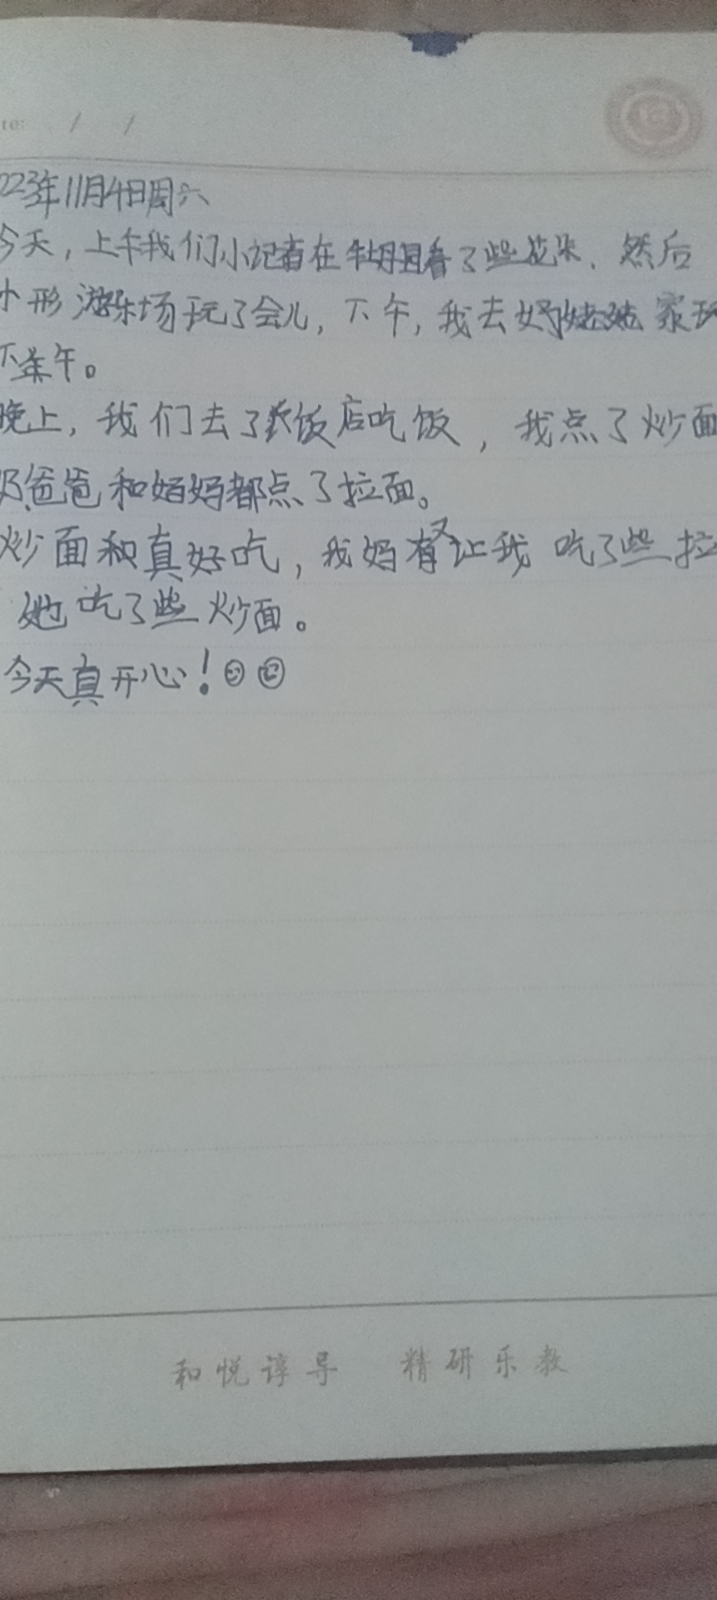 te: / /
023年11月4日周六
今天，上午我们小记者在牡丹园看了些花朵，然后
小形游乐场玩了会儿，下午，我去好姑姑家玩
下午。
晚上，我们去了饭店吃饭，我点了炒面
奶爸爸和妈妈都点了拉面。
炒面和真好吃，我妈有又让我吃了些拉
她吃了些炒面。
今天真开心！
和悦谆导 精研乐教